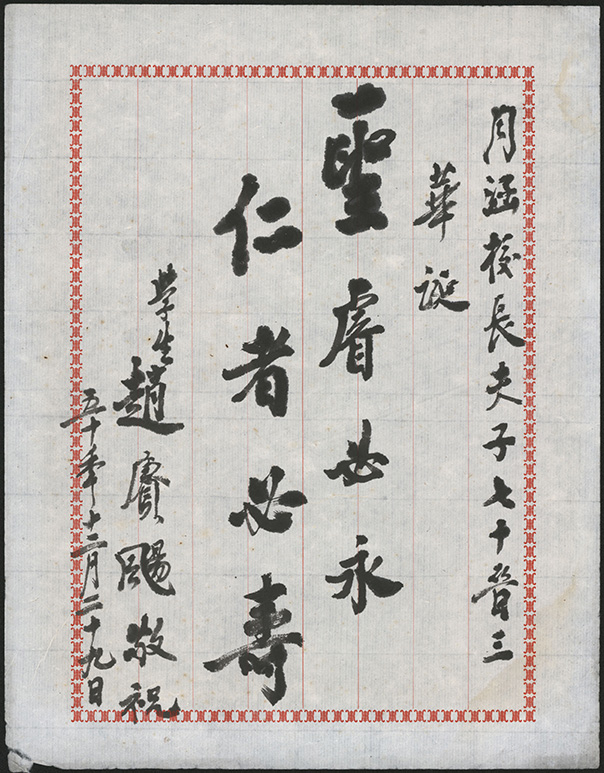 月涵校長夫子七十晉三
華誕
聖睿必永
仁者必壽
學生趙賡颺敬祝
五十年十二月二十九日